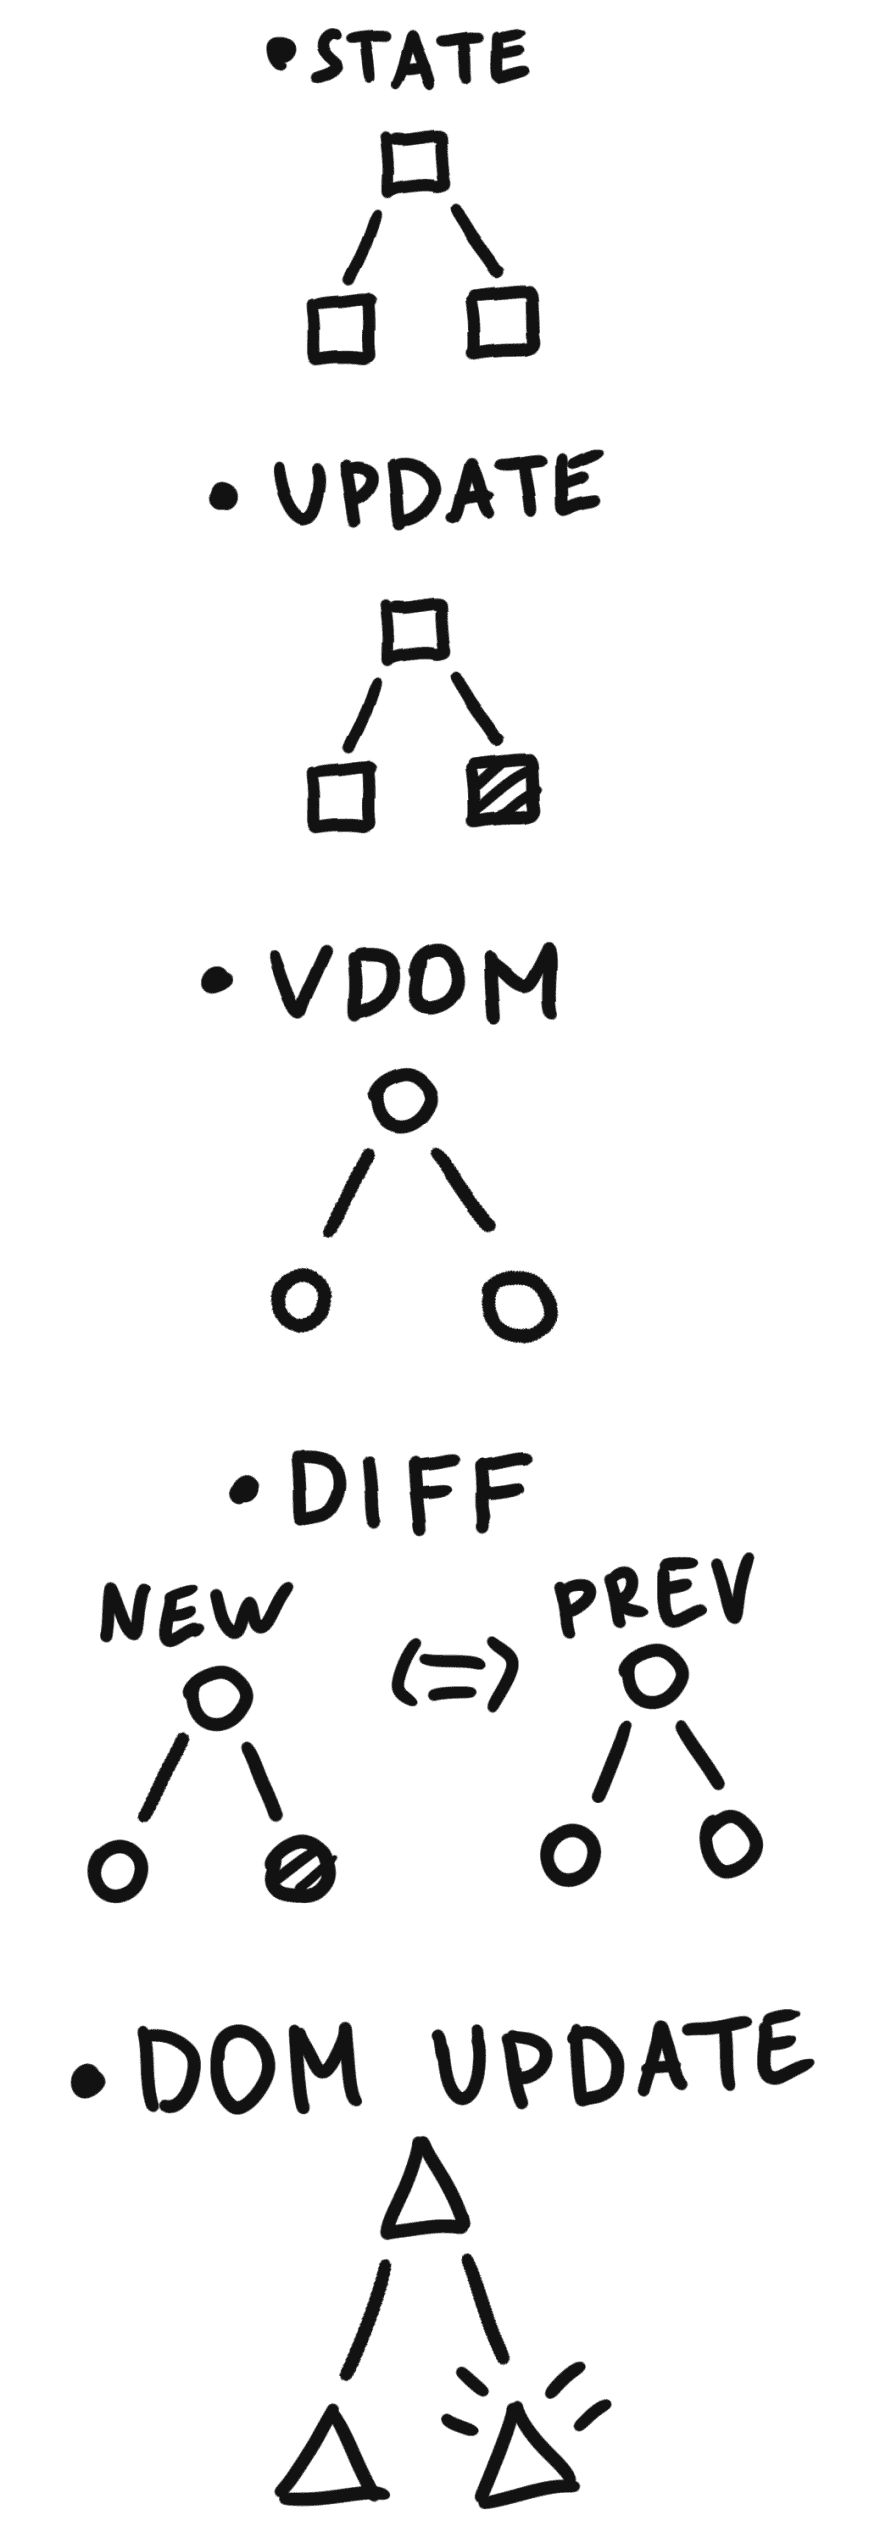 • STATE
• UPDATE
• VDOM
• DIFF
NEW (=) PREV
• DOM UPDATE